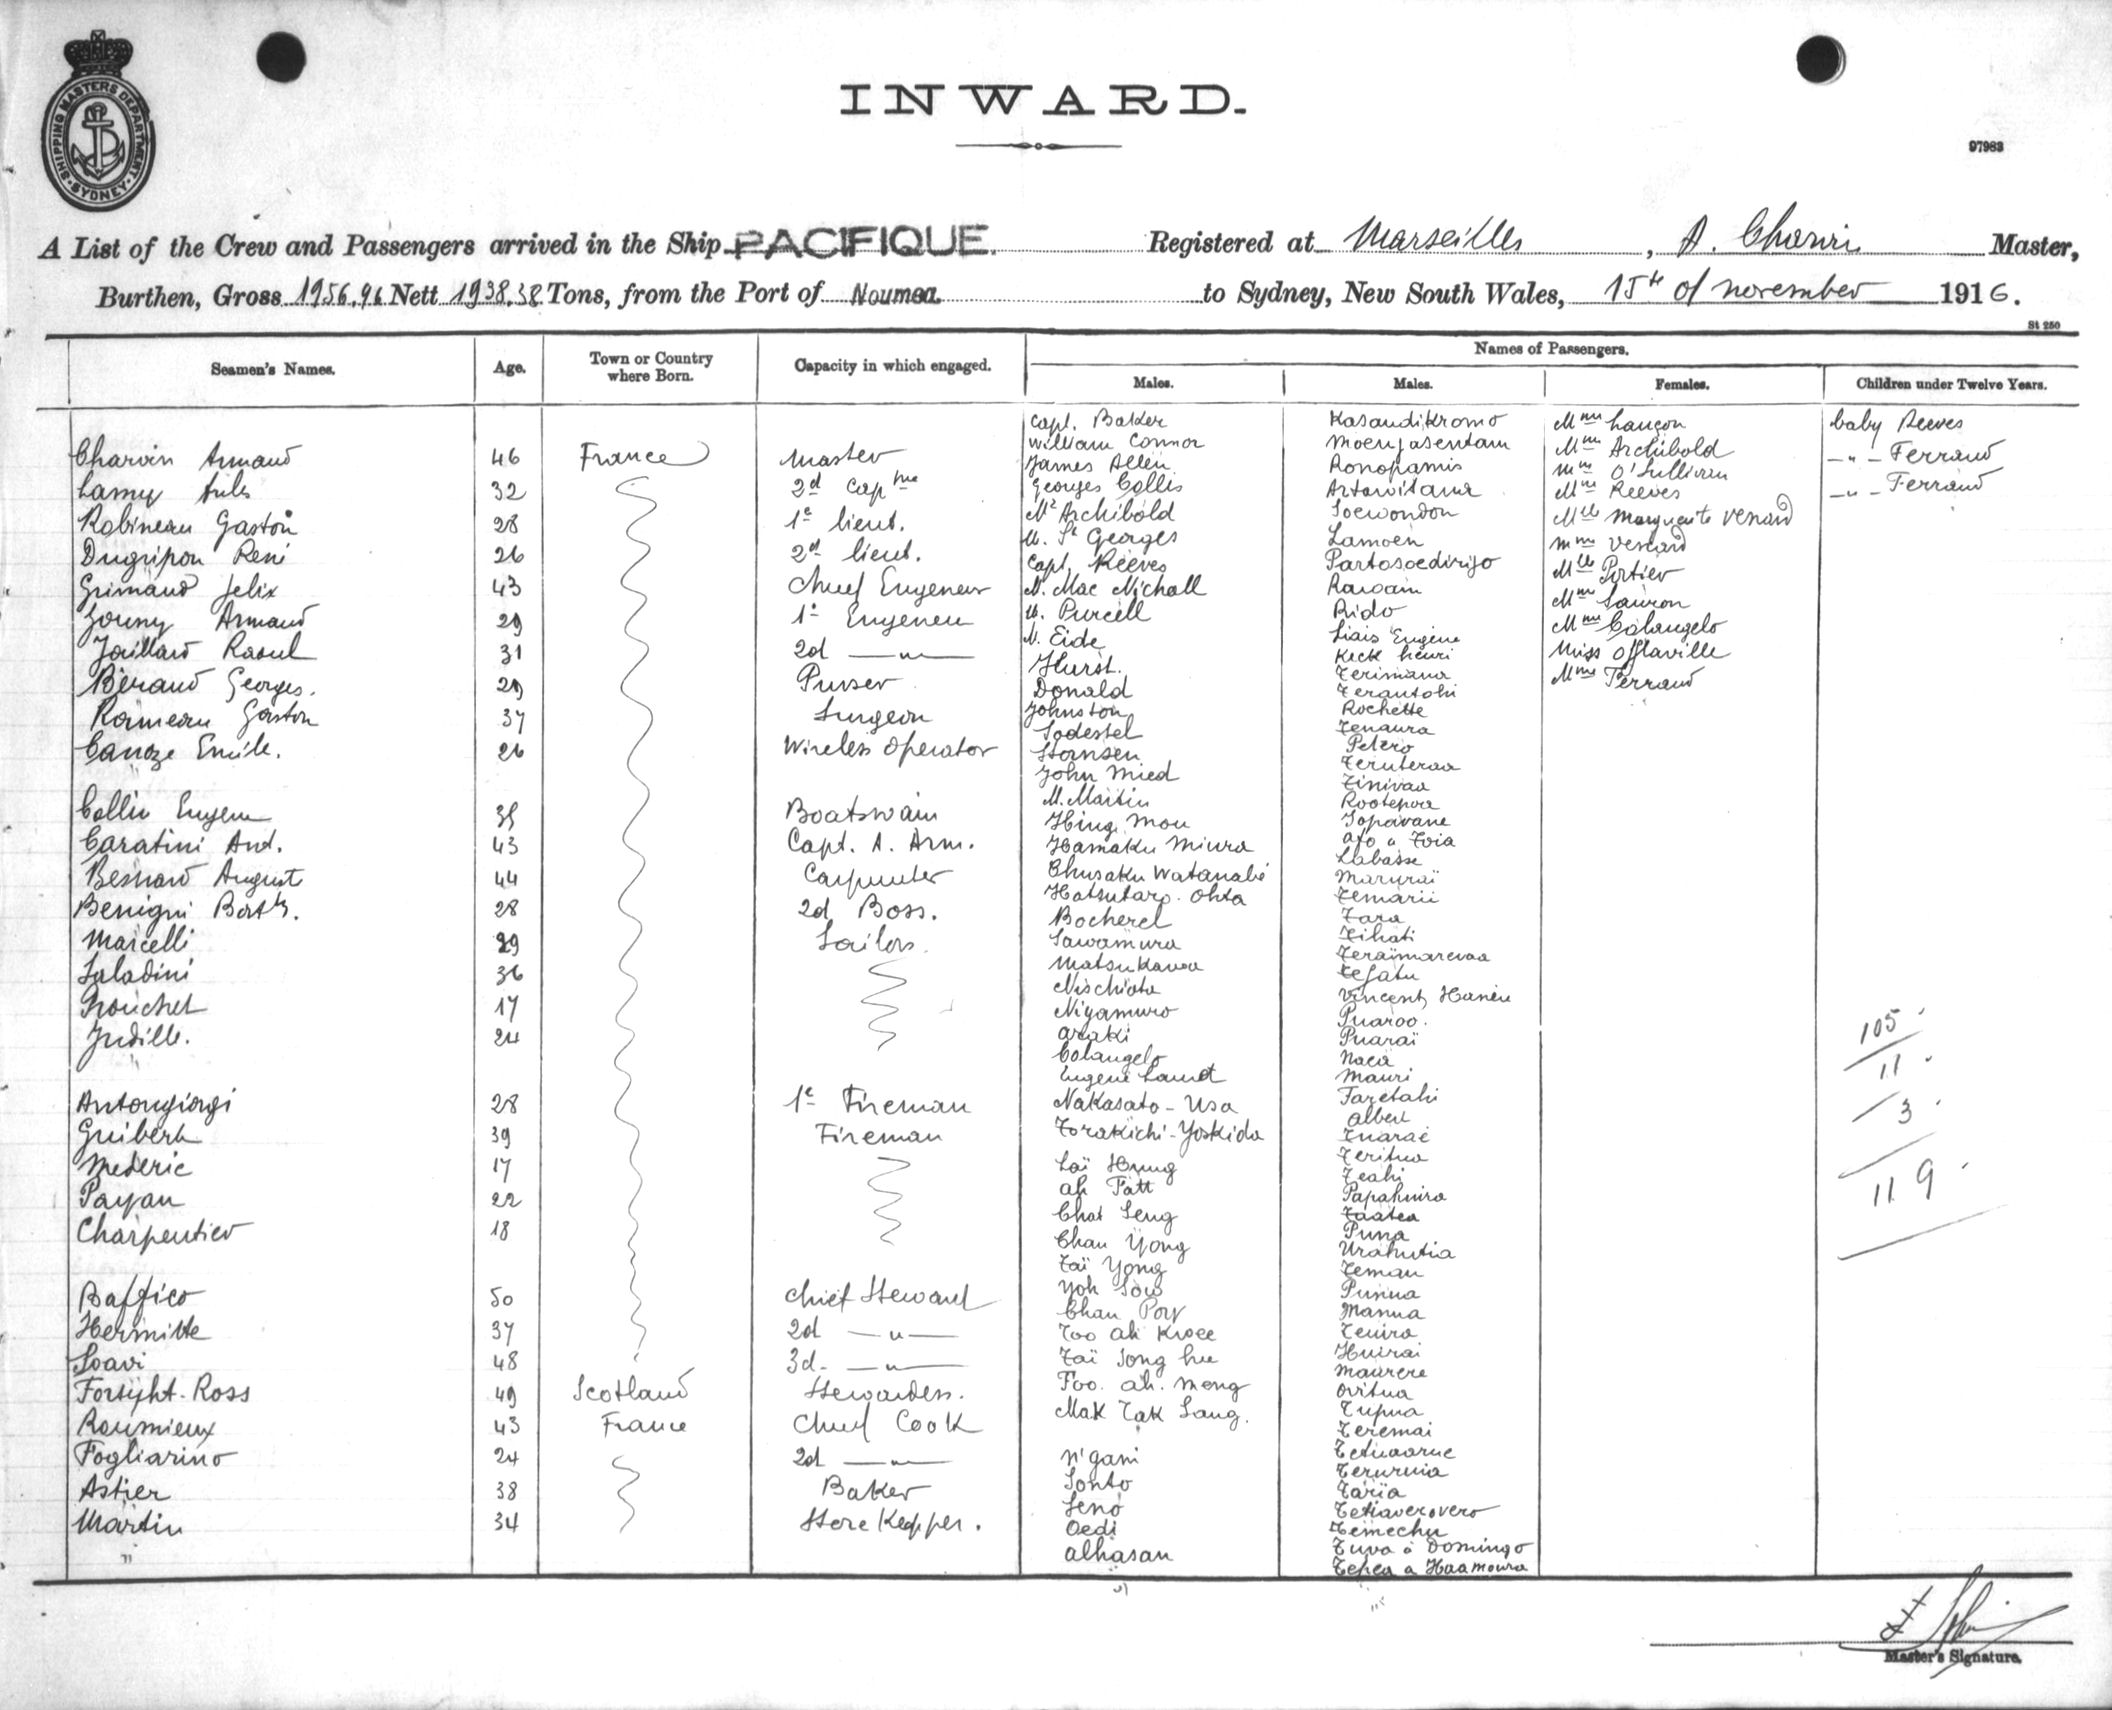 SHIPPING MASTERS DEPARTMENT
SYDNEY
INWARD.
97983
A List of the Crew and Passengers arrived in the Ship PACIFIQUE. Registered at Marseilles, A. Charvin Master,
Burthen, Gross 1956.96 Nett 1938.38 Tons, from the Port of Noumea. to Sydney, New South Wales, 15th of november 1916.
St 250
Seamen's Names. Age. Town or Country where Born. Capacity in which engaged. Names of Passengers.
Males. Males. Females. Children under Twelve Years.
Charvin Armand 46 France Master
Lamy Jules 32 2d Capne
Robineau Gaston 28 1e lieut.
Dugripon René 26 2d lieut.
Grimaud Felix 43 Chief Engeneer
Armand 29 1e Engeneer
Jaillard Raoul 31 2d — " —
Béraud Georges. 29 Purser
Rameau Gaston 37 Surgeon
Canoze Emile. 26 Wireless Operator
Collin Eugene 35 Boatswain
Caratini Ant. 43 Capt. A. Arm.
Besnard August 44 Carpenter
Benigni Barth. 28 2d Boss.
Marcelli 29 Sailors
Saladini 36
Trouchet 17
Judille. 24
Antongiorgi 28 1e Fireman
Guibert 39 Fireman
Mederic 17
Payan 22
Charpentier 18
Baffico 50 Chief Steward
Hermitte 37 2d — " —
Soavi 48 3d — " —
Forsyht-Ross 49 Scotland Stewardess.
Roumieux 43 France Chief Cook
Fogliarino 24 2d — " —
Astier 38 Baker
Martin 34 Store Kepper.
Capt. Baker
William Connor
James Allen
Georges Collis
Mr Archibold
M. St Georges
Capt. Reeves
N. Mac Nichall
M. Purcell
N. Eide
Hurst.
Donald
Johnston
Sodestel
Stornsen
John Mied
M. Martin
Hing Mou
Hamaku Miura
Chusaku Watanabé
Hatsutaro Ohta
Bocherel
Sawamura
Matsukawa
Nischiota
Niyamuro
Araki
Colangelo
Eugene
Nakasato - Usa
Torakichi - Yoskida
Laï Hung
Ah Fatt
Chat Seng
Chan Yong
Taï Yong
Yoh Sow
Chan Poy
Too ah Kwee
Taï Song hee
Foo. ah. Meng
Mak Tak Sang.
N'gani
Sonto
Seno
Oedi
Alhasan
Kasandikromo
Moenjasentam
Ronopamis
Artowitana
Soewondon
Lamoen
Partosoedirijo
Rawain
Rido
Liais Eugène
Keck henri
Terimana
Terautohi
Rochette
Tenaura
Petero
Teruteraa
Tinivaa
Rootepoa
Topavane
Afo a Toia
Labasse
Maruraï
Temarii
Tara
Tihati
Teraïmarevaa
Tefatu
Vincent Haneu
Puaroo.
Puaraï
Naea
Mauri
Faretahi
Albert
Tuarae
Teritua
Teahi
Papahuira
Taatea
Puna
Urahutia
Teman
Punua
Manua
Teuira
Huirai
Maurere
Ovitua
Tupua
Teremai
Tetuaarue
Teruruia
Taria
Tetiaverovero
Temechu
Tuva a Domingo
Tepea a Haamoura
Mme Lançon
Mme Archibold
Mme O'Sullivan
Mme Reeves
Mlle Marguerite Venard
Mme Venard
Mlle Portier
Mme Sauron
Mme Colangelo
Miss Offlaville
Mme Ferraud
baby Reeves
— " — Ferraud
— " — Ferraud
105
11
3
119
Master's Signature.